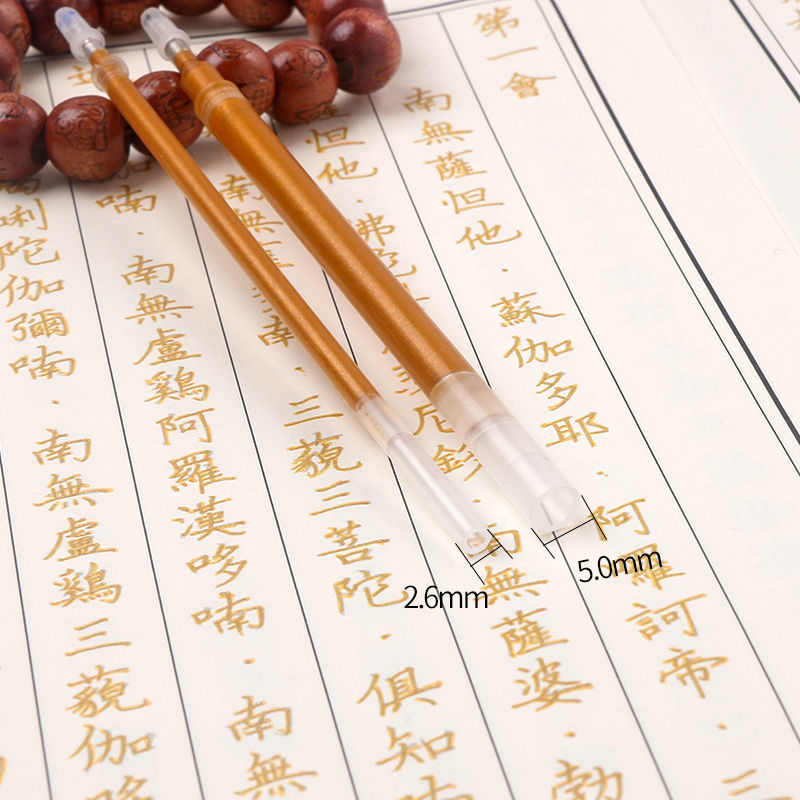 第一會
南無薩怛他．蘇伽多耶．阿羅訶帝．
怛他．佛陀 尼釤．南無薩婆．勃
南無 三藐三菩陀．俱知
喃．南無盧鷄阿羅漢哆喃．南無
唎陀伽彌喃．南無盧鷄三藐伽哆
2.6mm
5.0mm